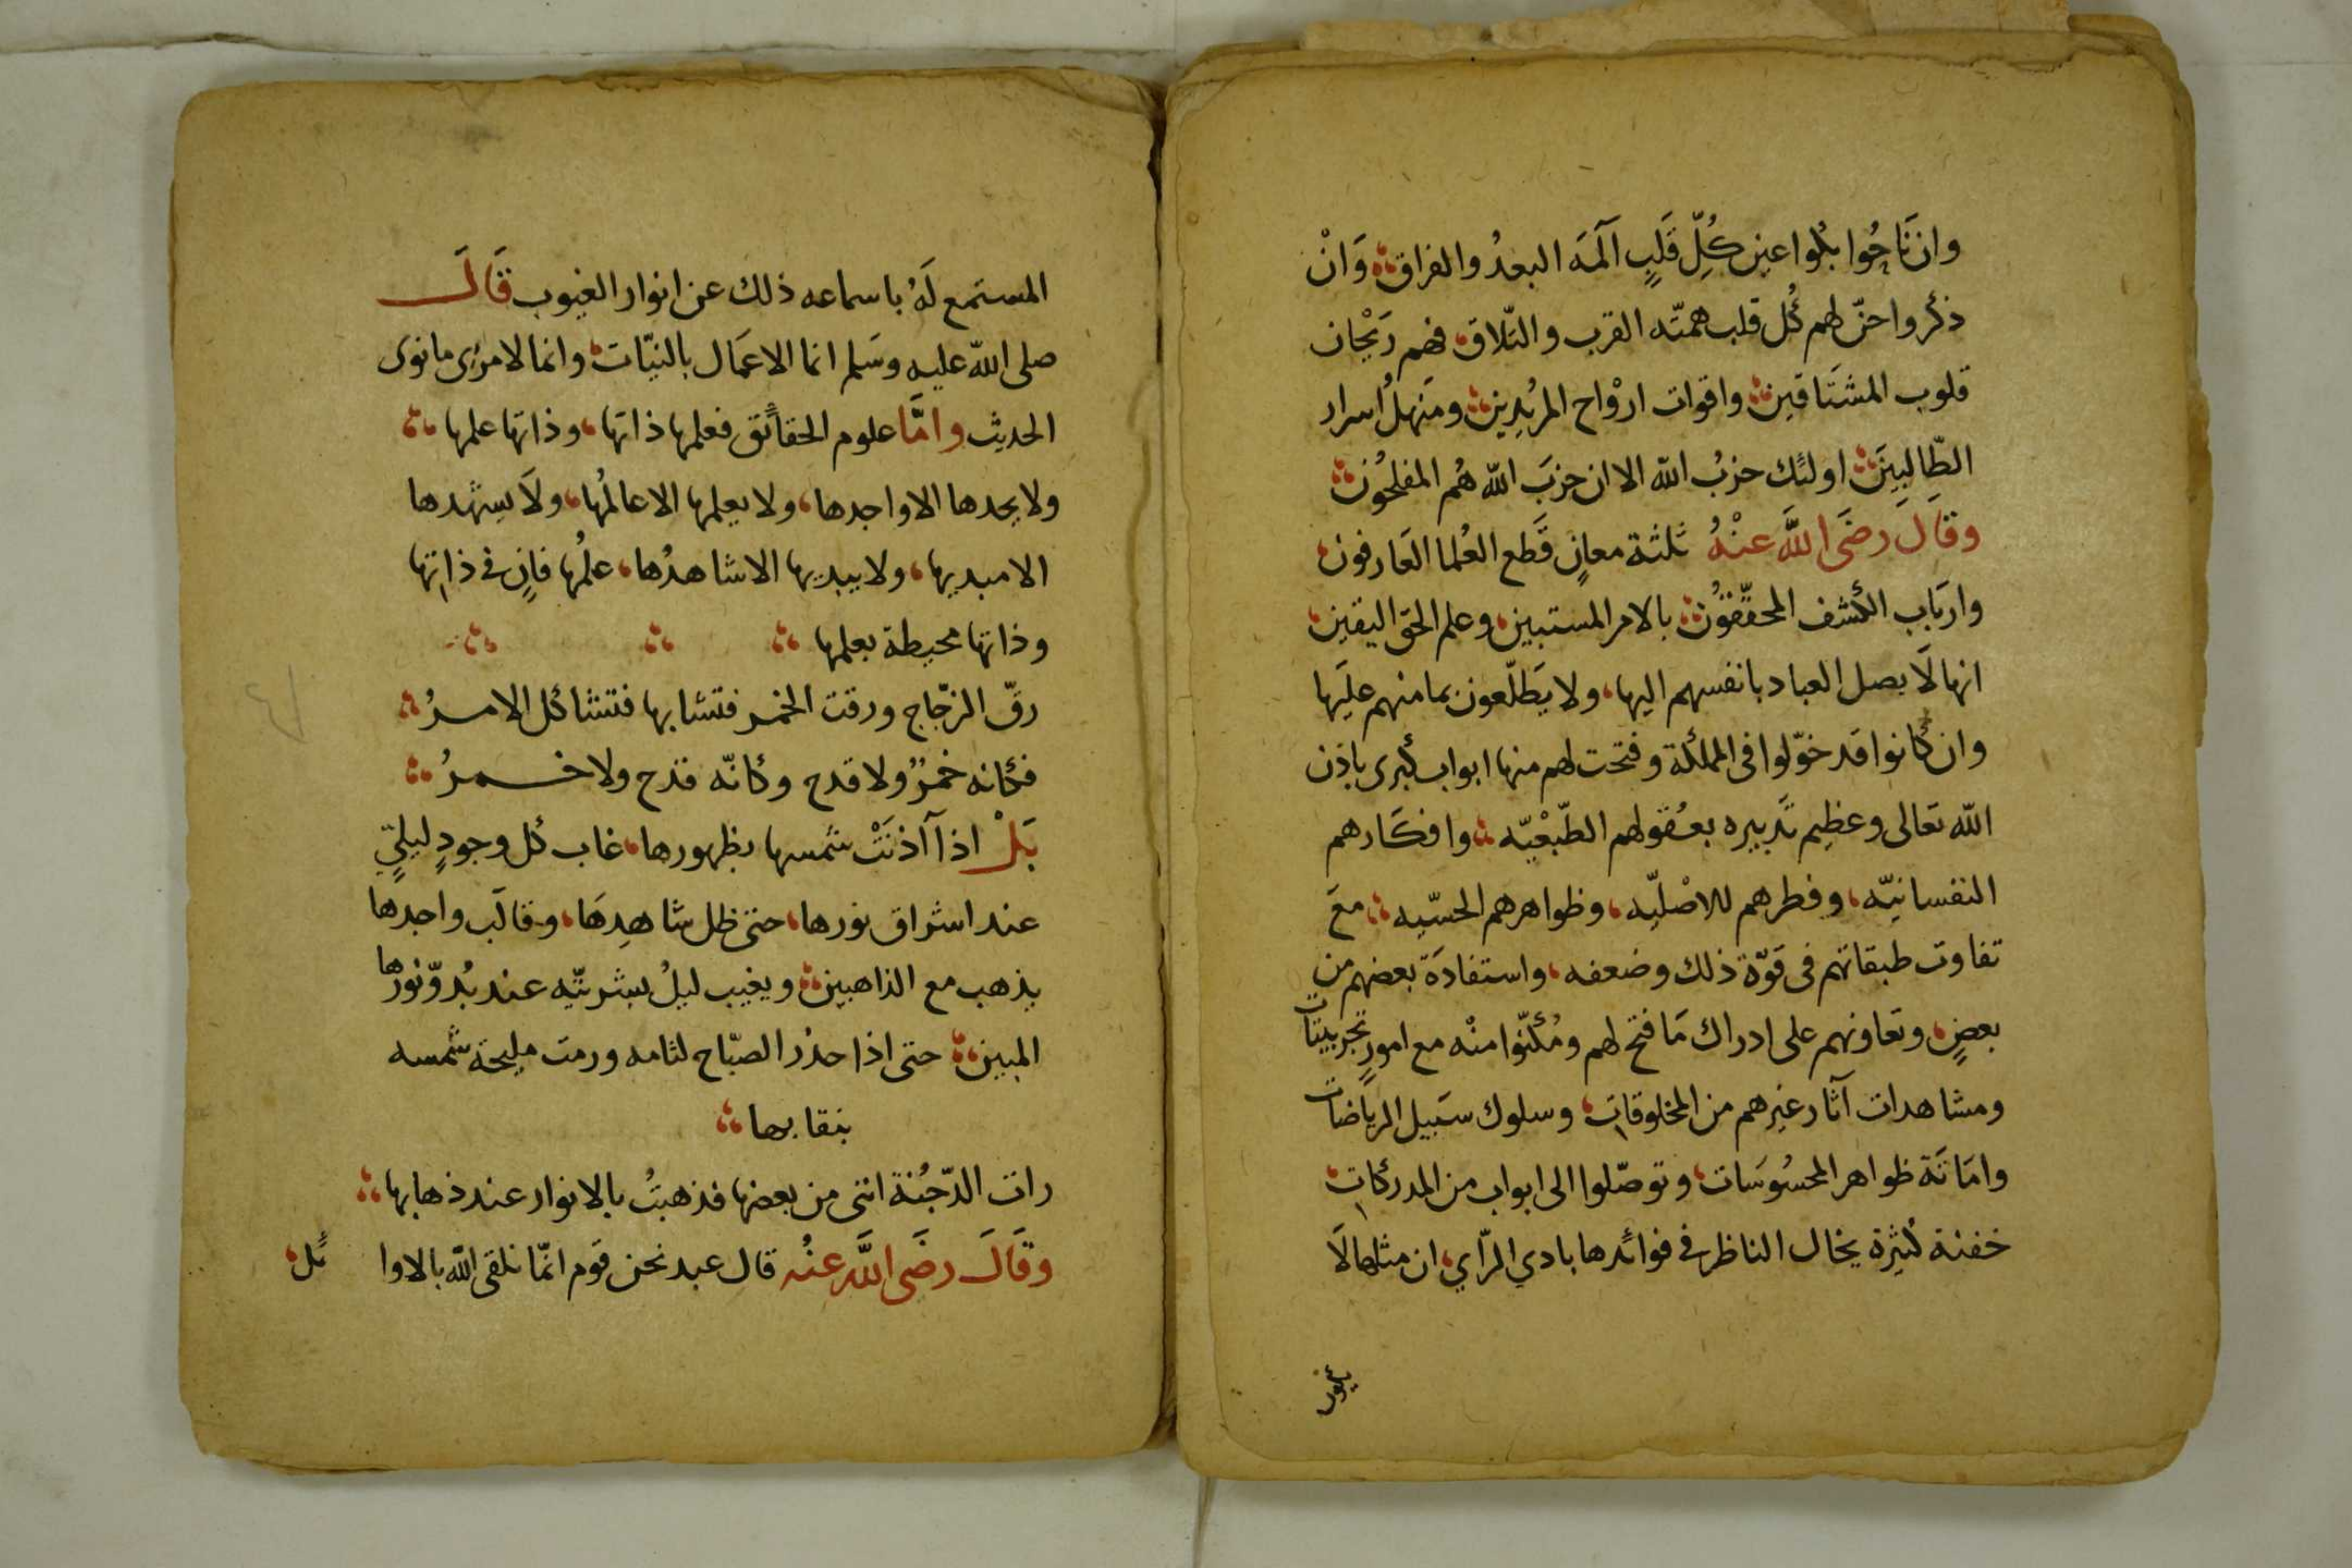 وان نَاحُوا بُلوا عين كُلِّ قَلبٍ آلمَه البعدُ والفراق وَانْ
ذكروا حنّ لهم كُل قلب همتّه القرب والتّلاق فهم رَيْحان
قلوب المشتَاقين واقوات ارْواح المرُيدِين ومَنهلُ اسرار
الطّالِبِينَ اولئك حزبُ الله الا ان حزبَ الله هُم المفلحُون
وقَالَ رضَى اللَّه عنْهُ ثلثة معانٍ قَطع العُلما العَارفون
واربَاب الكشف المحقّقوُن بالامر المستبين وعلم الحق اليقين
انها لَا يصل العباد بانفسهم اليها ولا يَطلّعون بما منهم عليَها
وان كَانوا قد خوّلوا فى المملكة وفتحت لهم منها ابواب كبرى باذن
الله تعَالى وعظيم تَدبيره بعُقولهم الطّبعْيّه وافكَارهم
النفسانيّه وفطرهم للاصْليّه وظواهرهم الحسّيه معَ
تفاوت طبقاتهم فى قوّة ذلك وضعفه واستفادَة بعضهم من
بعضٍ وتعَاونهم على ادراك مَا فتح لهم ومُكنّوا منْه مع امورٍ تجربيَّات
ومشاهدات آثار غيرهم من المخلوقات وسلوك سَبيل الرياضات
وامَاتَة ظواهر المحسُوسَات وتوصّلوا الى ابواب من المدركات
خفنة كثيرة يخال الناظر فى فوائدها بادي الرّاي ان مثلها لَا
المستمع لَهُ باسماعه ذلك عن انوار الغيوب قَالَ
صلى الله عليه وسَلم انما الاعمَال بالنيّات وانما لامرئ ما نوى
الحديث وامَّا علوم الحقائق فعلمها ذاتها وذاتها علمها
ولا يحدها الا واجدها ولا يعلمها الا عالمُها ولَا يشهدها
الا مبديها ولا يبديها الا شاهدُها علمُها فانٍ فى ذاتها
وذاتها محيطة بعلمها
رقّ الزّجاج ورقت الخمر فتشابها فتشاكل الامرُ
فكانه خمرٌ ولا قدح وكانّه قدح ولا خمرُ
بَلْ اذا آذنَتْ شمسها بظهورها غاب كل وجودٍ ليليٍّ
عند اشراق نورها حتى ظل شاهِدهَا وقالَب واجدها
يذهب مع الذاهبين ويغيب ليلُ بشريّتِه عند بُدوّ نورها
المبين حتى اذا حدُر الصبّاح لثامه ورمت مليحة شمسه
بنقابها
رات الدّجُنة انثى من بعضها فذهبتُ بالانوار عند ذهابها
وقَالَ رضَى اللَّه عنْهُ قال عبد نحن قوم انمّا نلقى الله بالاوائل